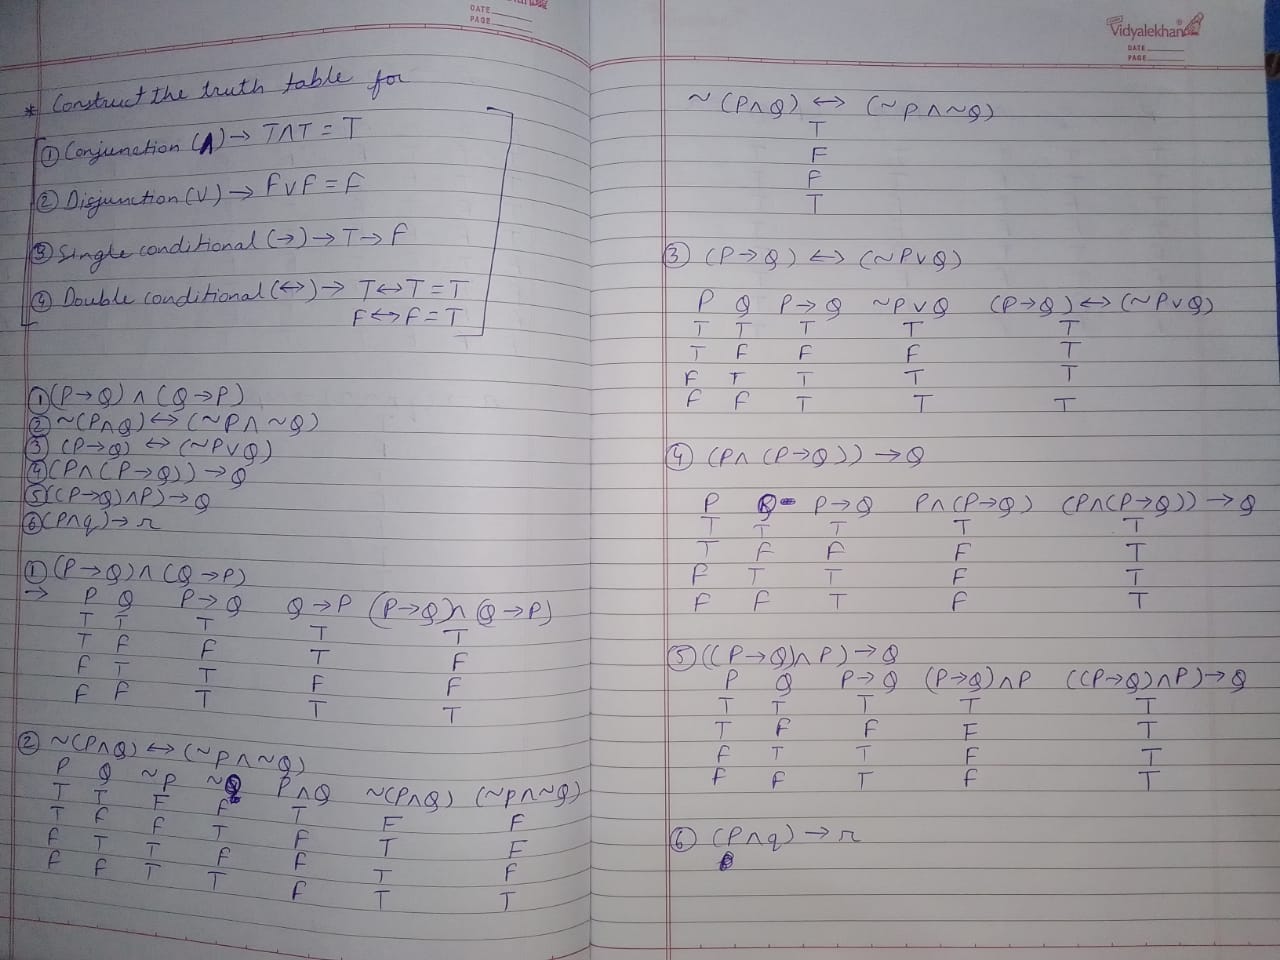 DATE
PAGE
* Construct the truth table for
① Conjunction (∧) → T∧T = T
② Disjunction (V) → F∨F = F
③ Single conditional (→) → T→F
④ Double conditional (↔) → T↔T = T
F↔F = T
① (P→Q) ∧ (Q→P)
② ~(P∧Q) ↔ (~P∧~Q)
③ (P→Q) ↔ (~P∨Q)
④ (P∧(P→Q)) → Q
⑤ ((P→Q)∧P) → Q
⑥ (P∧q) → r
① (P→Q)∧(Q→P)
→ P Q P→Q Q→P (P→Q)∧(Q→P)
T T T T T
T F F T F
F T T F F
F F T T T
② ~(P∧Q) ↔ (~P∧~Q)
P Q ~P ~Q P∧Q ~(P∧Q) (~P∧~Q)
T T F F T F F
T F F T F T F
F T T F F T F
F F T T F T T
Vidyalekhan
DATE
PAGE
~(P∧Q) ↔ (~P∧~Q)
T
F
F
T
③ (P→Q) ↔ (~P∨Q)
P Q P→Q ~P∨Q (P→Q) ↔ (~P∨Q)
T T T T T
T F F F T
F T T T T
F F T T T
④ (P∧(P→Q)) → Q
P Q P→Q P∧(P→Q) (P∧(P→Q)) → Q
T T T T T
T F F F T
F T T F T
F F T F T
⑤ ((P→Q)∧P) → Q
P Q P→Q (P→Q)∧P ((P→Q)∧P) → Q
T T T T T
T F F F T
F T T F T
F F T F T
⑥ (P∧q) → r